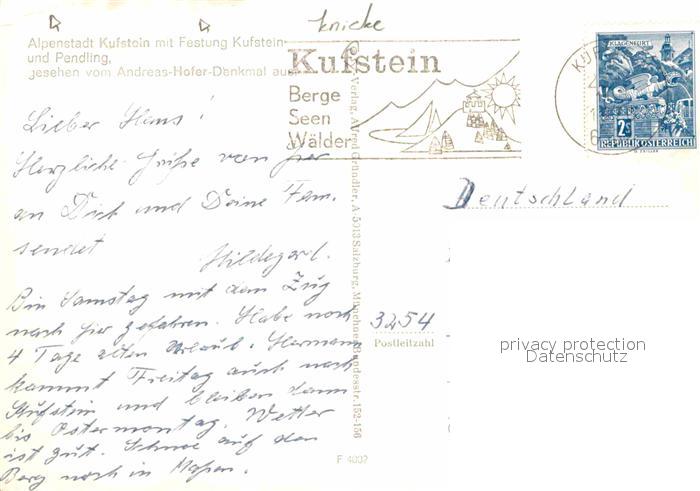 knicke
Alpenstadt Kufstein mit Festung Kufstein
und Pendling,
gesehen vom Andreas-Hofer-Denkmal aus
Kufstein
Berge
Seen
Wälder
KUF
KLAGENFURT
2S
REPUBLIK ÖSTERREICH
Lieber Hans!
Herzliche Grüße von hier
an Dich und Deine Fam.
sendet
Hildegard.
Bin Samstag mit dem Zug
nach hier gefahren. Habe noch
4 Tage alten Urlaub. Hermann
kommt Freitag auch nach
Kufstein und bleiben dann
bis Ostermontag. Wetter
ist gut. Schnee auf den
Berg noch in Maßen.
© Verlag, Alfred Gründler, A-5013 Salzburg, Münchner Bundesstr. 152-156
F 4002
Deutschland
3254
Postleitzahl
privacy protection
Datenschutz